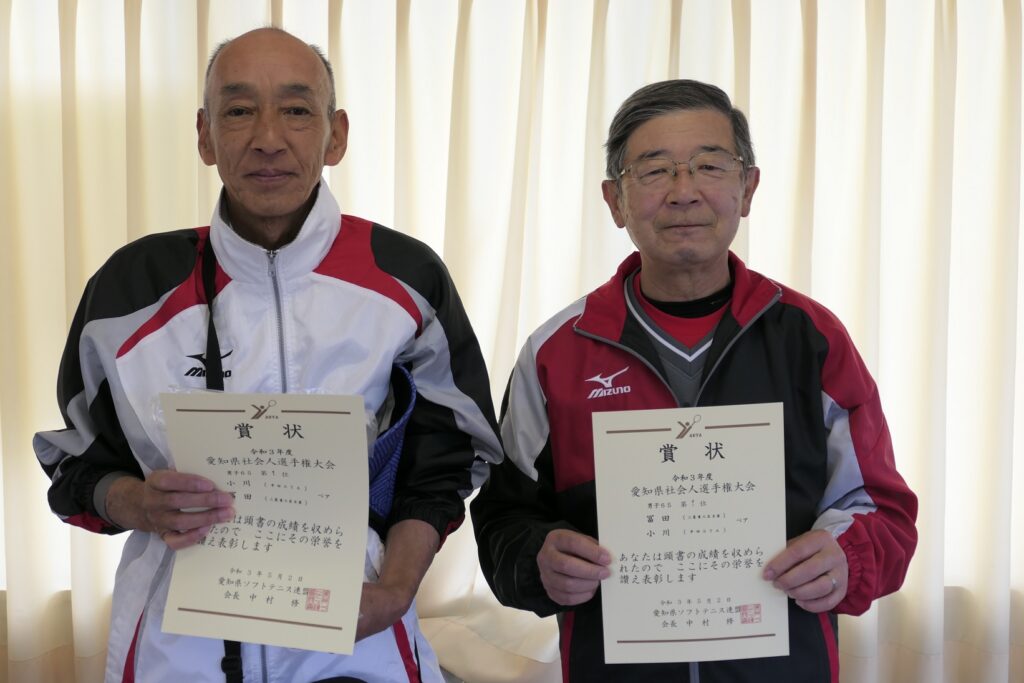 MIZUNO
ASTA
賞状
令和3年度
愛知県社会人選手権大会
男子65 第1位
小川
冨田
ペア
あなたは頭書の成績を収めら
れたので ここにその栄誉を
讃え表彰します
令和3年5月2日
愛知県ソフトテニス連盟
会長 中村 修
MIZUNO
ASTA
賞状
令和3年度
愛知県社会人選手権大会
男子65 第1位
冨田
小川
ペア
あなたは頭書の成績を収めら
れたので ここにその栄誉を
讃え表彰します
令和3年5月2日
愛知県ソフトテニス連盟
会長 中村 修